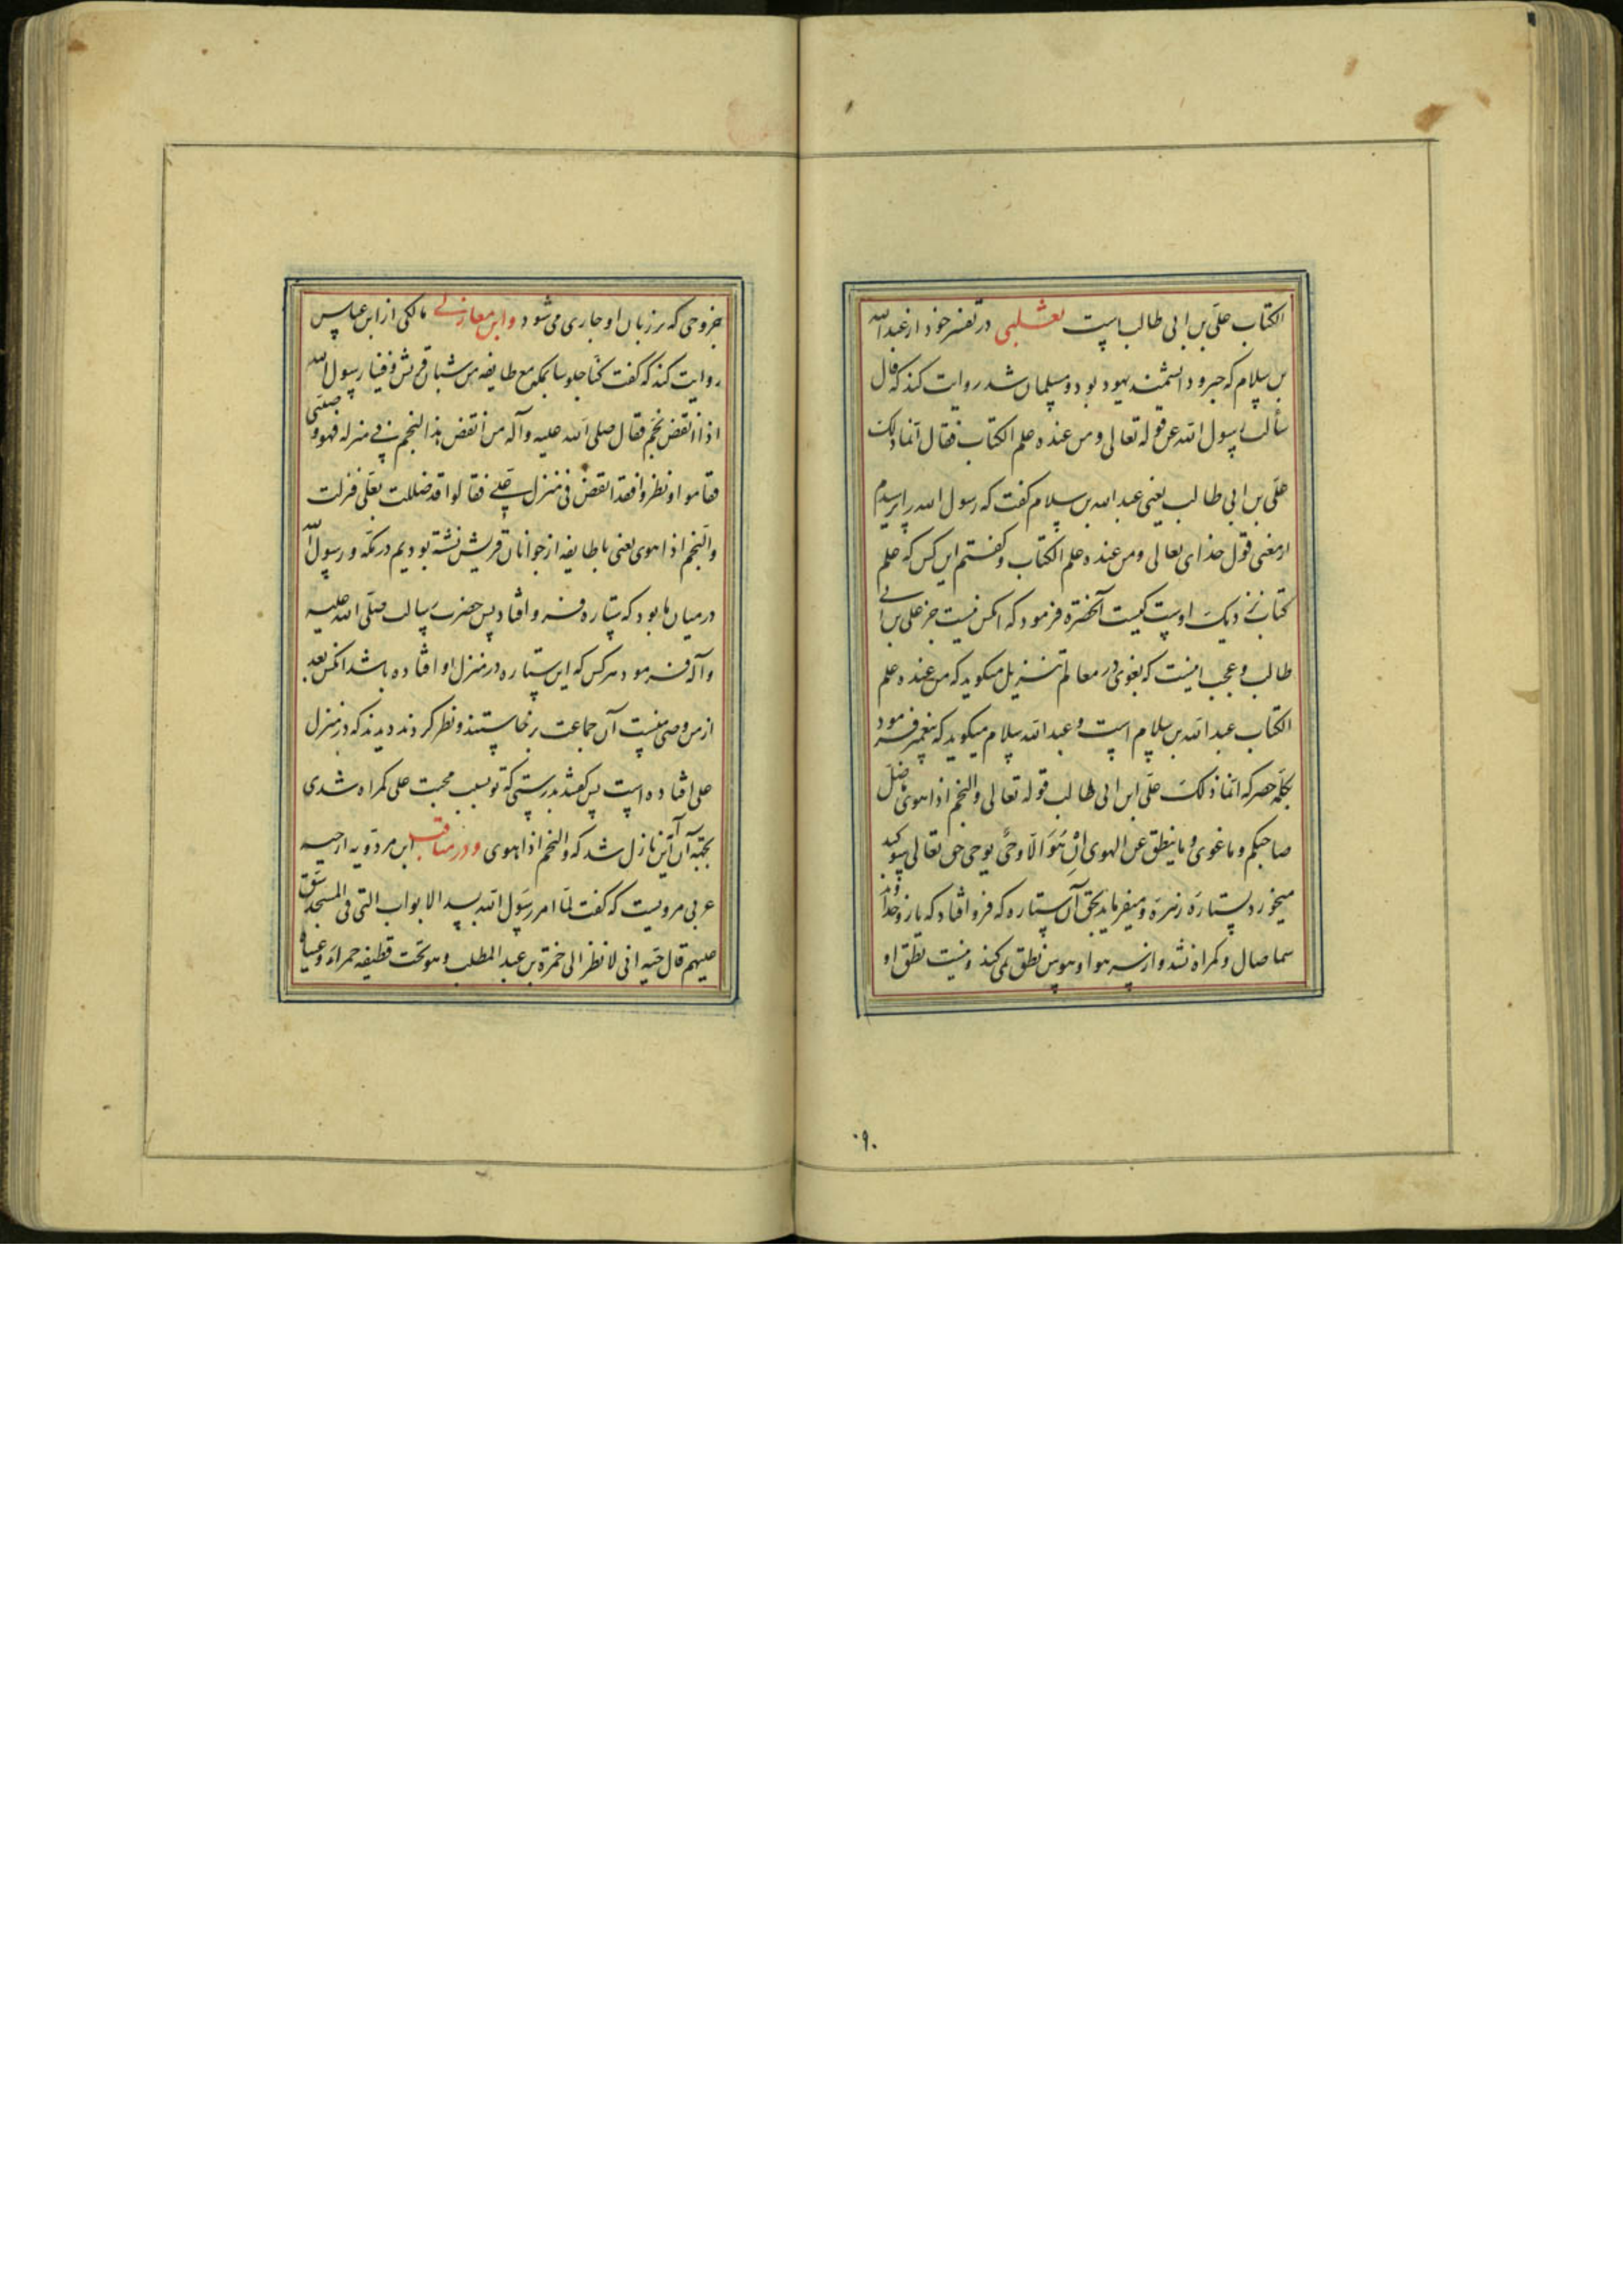 الکتاب علیّ بن ابی طالب است ثعلبی در تفسیر خود از عبدالله
بن سلام که حبر و دانشمند یهود بود و مسلمان شد روایت کند که قال
سألت رسول الله عن قوله تعالی و من عنده علم الکتاب فقال انّما ذلک
علیّ بن ابی طالب یعنی عبدالله بن سلام گفت که رسول الله را پرسیدم
از معنی قول خدای تعالی و من عنده علم الکتاب و گفتم این کس که علم
کتاب نزدیک اوست کیست آنحضرة فرمود که آنکس نیست جز علی بن ابی
طالب و عجب اینست که بغوی در معالم تنزیل میگوید که من عنده علم
الکتاب عبدالله بن سلام است و عبدالله سلام میگوید که پیغمبر فرمود
بکلمه حصر که انّما ذلک علیّ ابن ابی طالب قوله تعالی والنجم اذا هوی ما ضلّ
صاحبکم و ما غوی و ما ینطق عن الهوی اِنْ هُوَ الّا وحیٌ یوحی حق تعالی سوگند
میخورد بستارهٔ زهره و میفرماید بحق آن ستاره که فرو افتاد که یار و خداوند
شما ضال و گمراه نشد و از سر هوا و هوس نطق نمی کند و نیست نطق او
جز وحی که بر زبان او جاری می شود و ابن مغازلی مالکی از ابن عباس
روایت کند که گفت کنّا جلوسا بمکة مع طایفه من شبان قریش و فینا رسول الله
اذا انقض نجم فقال صلی الله علیه و آله من انقض هذا النجم فی منزله فهو وصیّی
فقاموا و نظروا فقد انقض فی منزل علی فقالوا قد ضللت بعلی فنزلت
والنجم اذا هوی یعنی با طایفه از جوانان قریش نشته بودیم در مکّه و رسول الله
در میان ما بود که ستاره فرو افتاد پس حضرت رسالت صلّی الله علیه
و آله فرمود هر کس که این ستاره در منزل او افتاده باشد آنکس بعد
از من وصی منست آن جماعت برخاستند و نظر کردند دیدند که در منزل
علی افتاده است پس گفتند بدرستی که تو بسبب محبت علی گمراه شدی
بجهة آن آیتین نازل شد که والنجم اذا هوی و در مناقب ابن مردویه از حبه
عربی مرویست که گفت لمّا امر رسول الله بسد الابواب التی فی المسجد شق
علیهم قال حبه انی لانظر الی حمزة بن عبد المطلب و هو تحت قطیفه حمراء و عیناه
۰۹۰